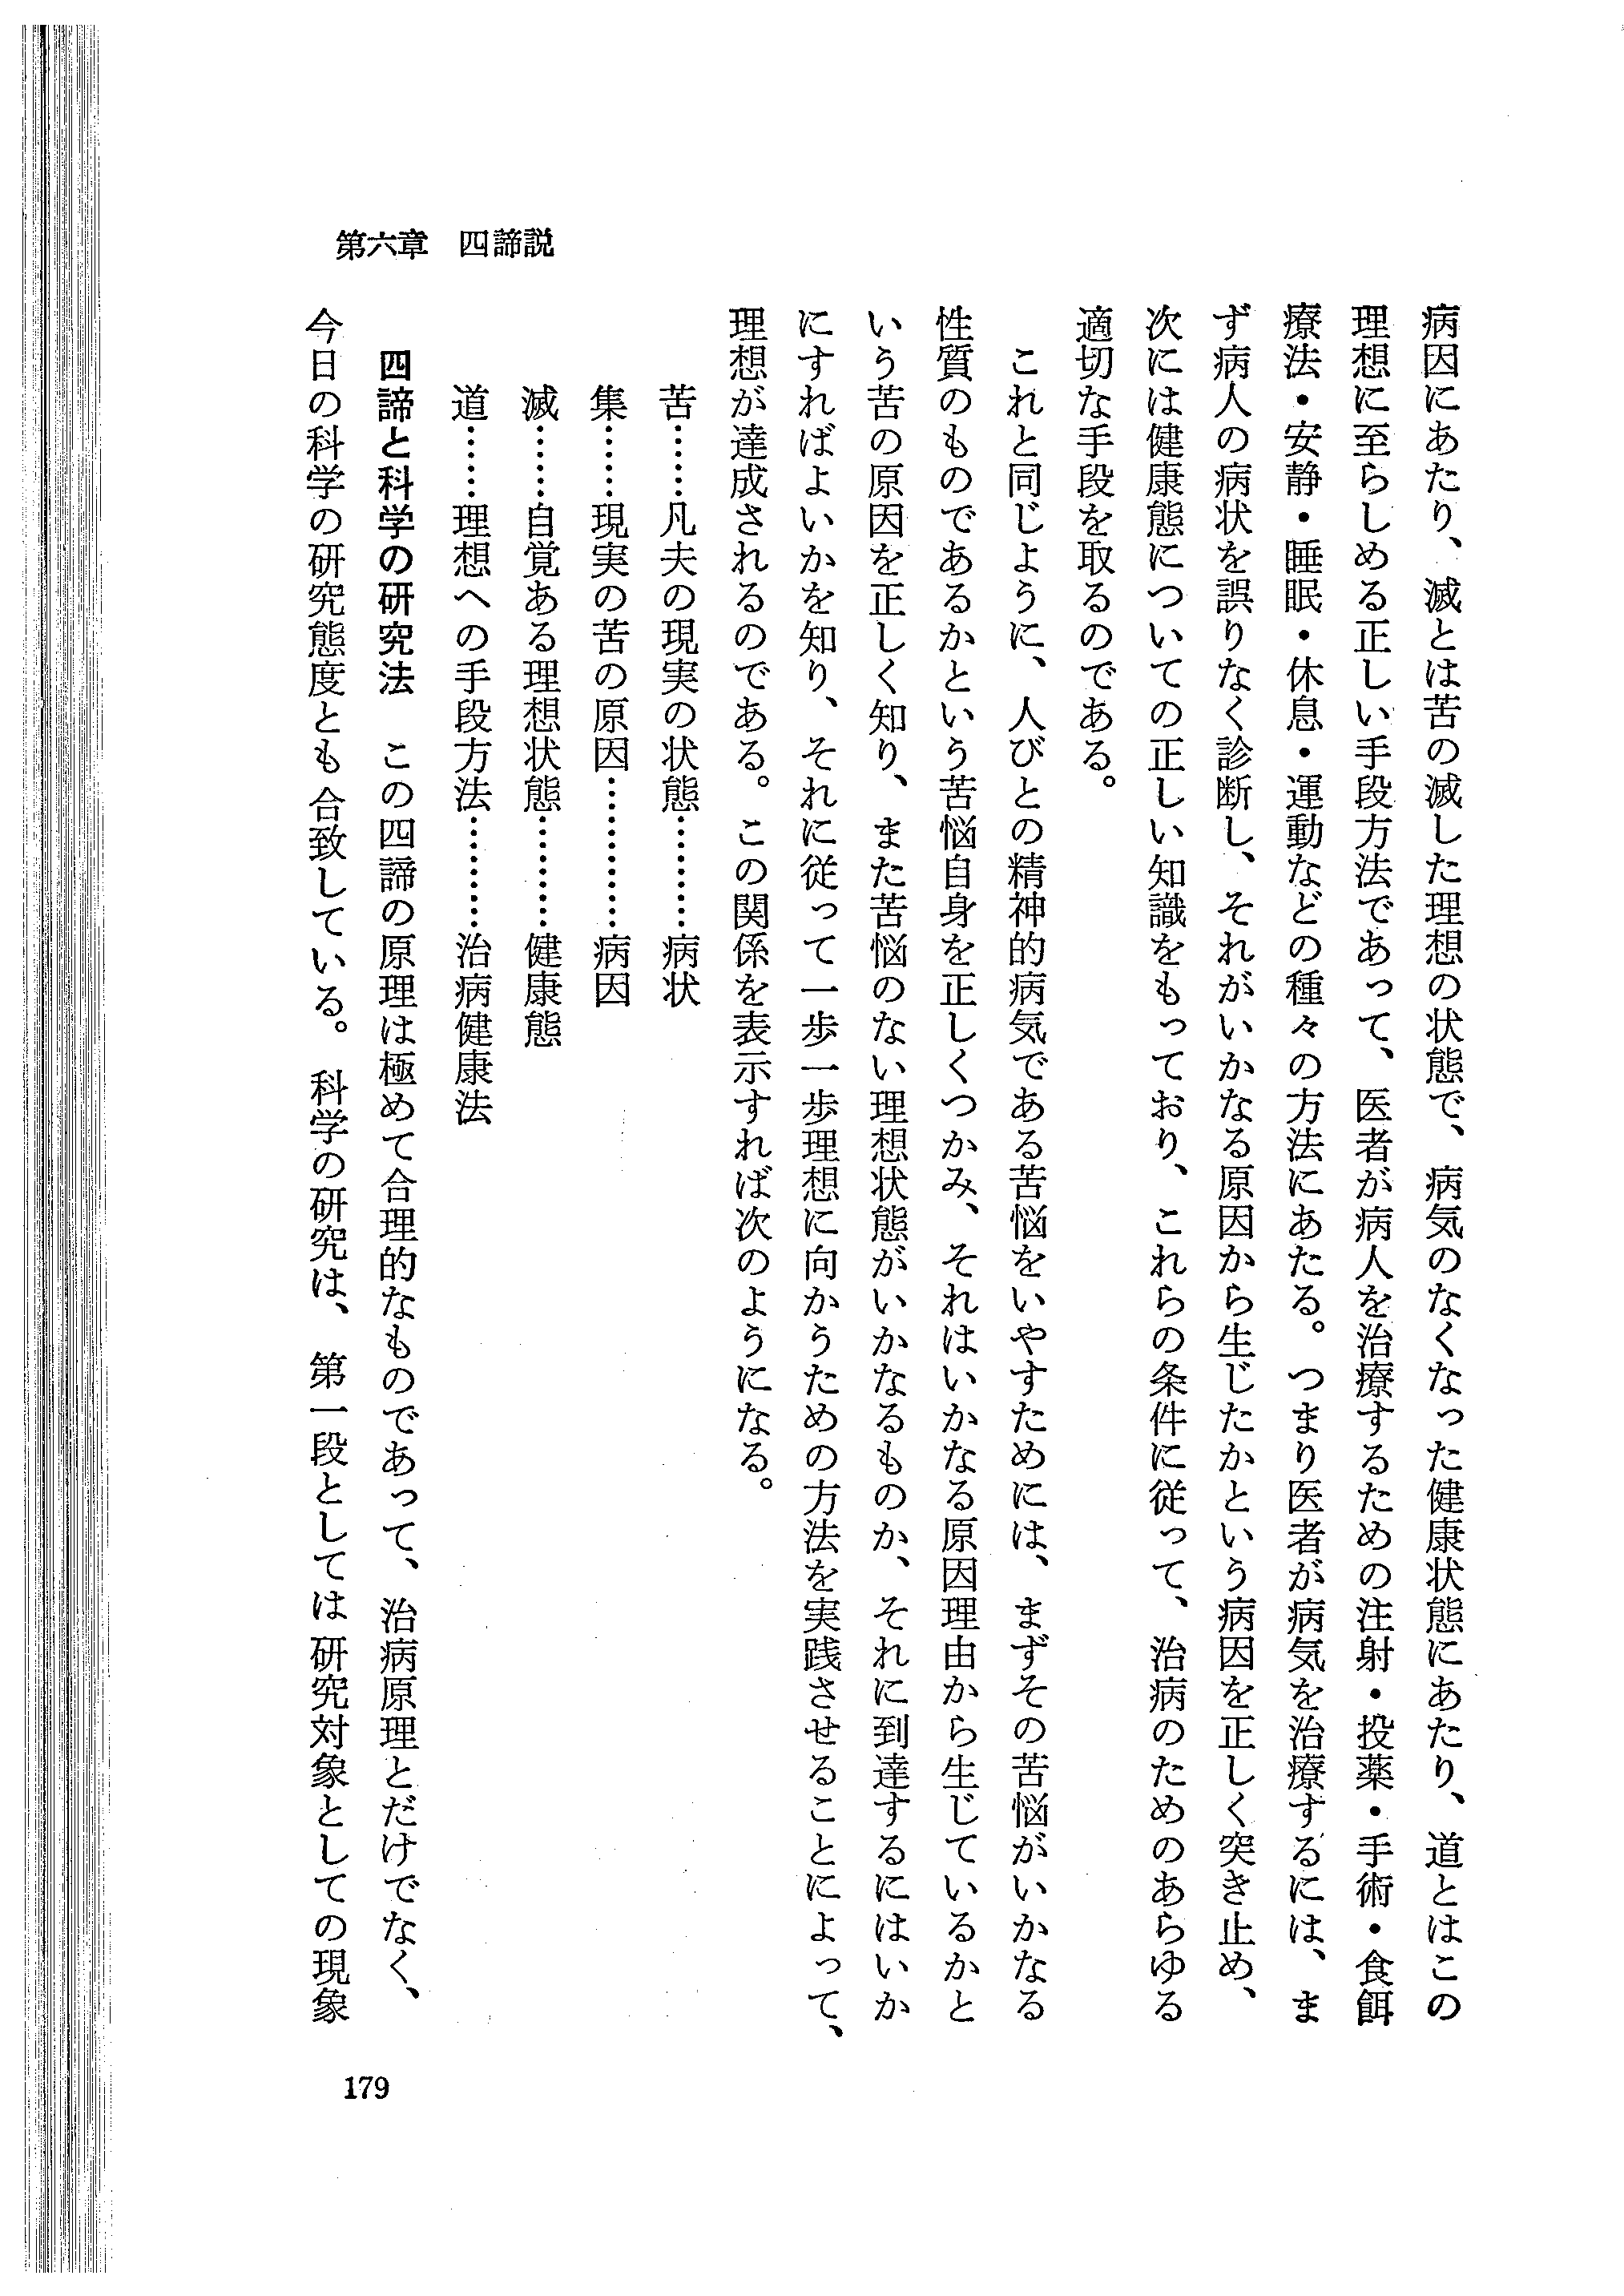 第六章　四諦説
病因にあたり、滅とは苦の滅した理想の状態で、病気のなくなった健康状態にあたり、道とはこの
理想に至らしめる正しい手段方法であって、医者が病人を治療するための注射・投薬・手術・食餌
療法・安静・睡眠・休息・運動などの種々の方法にあたる。つまり医者が病気を治療するには、ま
ず病人の病状を誤りなく診断し、それがいかなる原因から生じたかという病因を正しく突き止め、
次には健康態についての正しい知識をもっており、これらの条件に従って、治病のためのあらゆる
適切な手段を取るのである。
これと同じように、人びとの精神的病気である苦悩をいやすためには、まずその苦悩がいかなる
性質のものであるかという苦悩自身を正しくつかみ、それはいかなる原因理由から生じているかと
いう苦の原因を正しく知り、また苦悩のない理想状態がいかなるものか、それに到達するにはいか
にすればよいかを知り、それに従って一歩一歩理想に向かうための方法を実践させることによって、
理想が達成されるのである。この関係を表示すれば次のようになる。
苦……凡夫の現実の状態………病状
集……現実の苦の原因…………病因
滅……自覚ある理想状態………健康態
道……理想への手段方法………治病健康法
四諦と科学の研究法　この四諦の原理は極めて合理的なものであって、治病原理とだけでなく、
今日の科学の研究態度とも合致している。科学の研究は、第一段としては研究対象としての現象
179